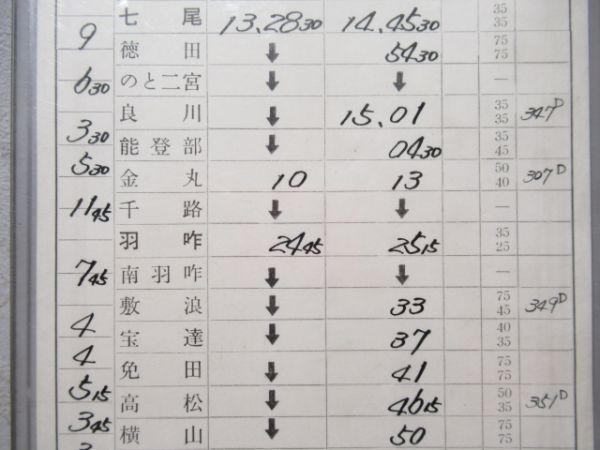 七尾 13.28 30 14.45 30 35 35
9
徳田 ↓ 54 30 75 75
6 30
のと二宮 ↓ ↓ —
良川 ↓ 15.01 35 35 347D
3 30
能登部 ↓ 04 30 35 45
5 30
金丸 10 13 50 40 307D
千路 ↓ ↓ —
11 45
羽咋 24 45 25 15 35 25
南羽咋 ↓ ↓ —
7 45
敷浪 ↓ 33 75 45 349D
4
宝達 ↓ 37 40 35
4
免田 ↓ 41 75 75
5 15
高松 ↓ 46 15 50 35 351D
3 45
横山 ↓ 50 75 75